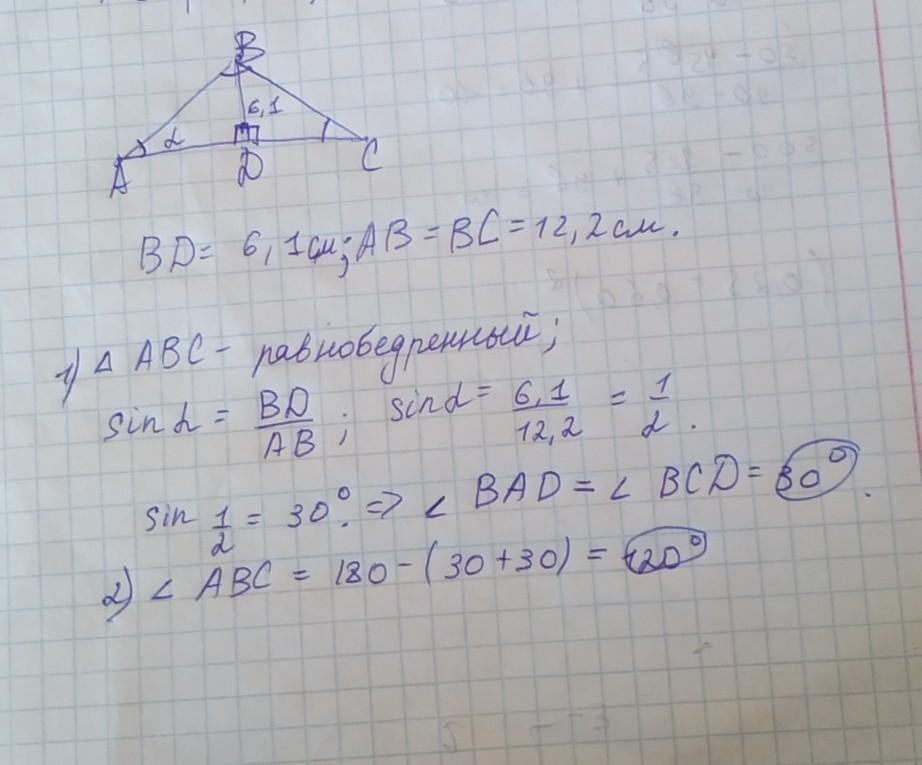 B
6,1
α
A
D
C
BD = 6,1см; AB = BC = 12,2 см.
1) Δ ABC - равнобедренный;
sin α = BD/AB ; sin α = 6,1/12,2 = 1/2.
sin 1/2 = 30°. => ∠ BAD = ∠ BCD = 30°.
2) ∠ ABC = 180 - (30 + 30) = 120°